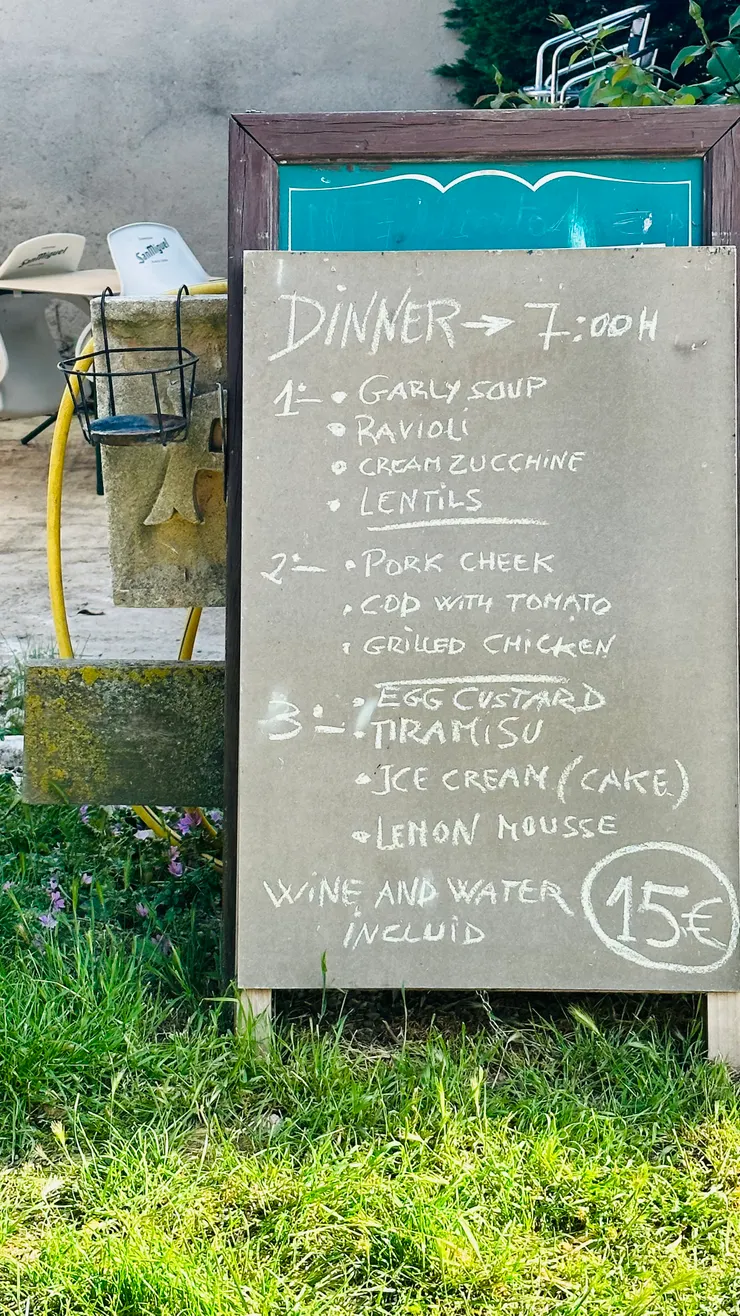 SanMiguel
SanMiguel
DINNER → 7:00H
1:- • GARLY SOUP
• RAVIOLI
• CREAM ZUCCHINE
• LENTILS
2:- • PORK CHEEK
• COD WITH TOMATO
• GRILLED CHICKEN
3:- • EGG CUSTARD
• TIRAMISU
• ICE CREAM (CAKE)
• LEMON MOUSSE
WINE AND WATER
INCLUID
15€